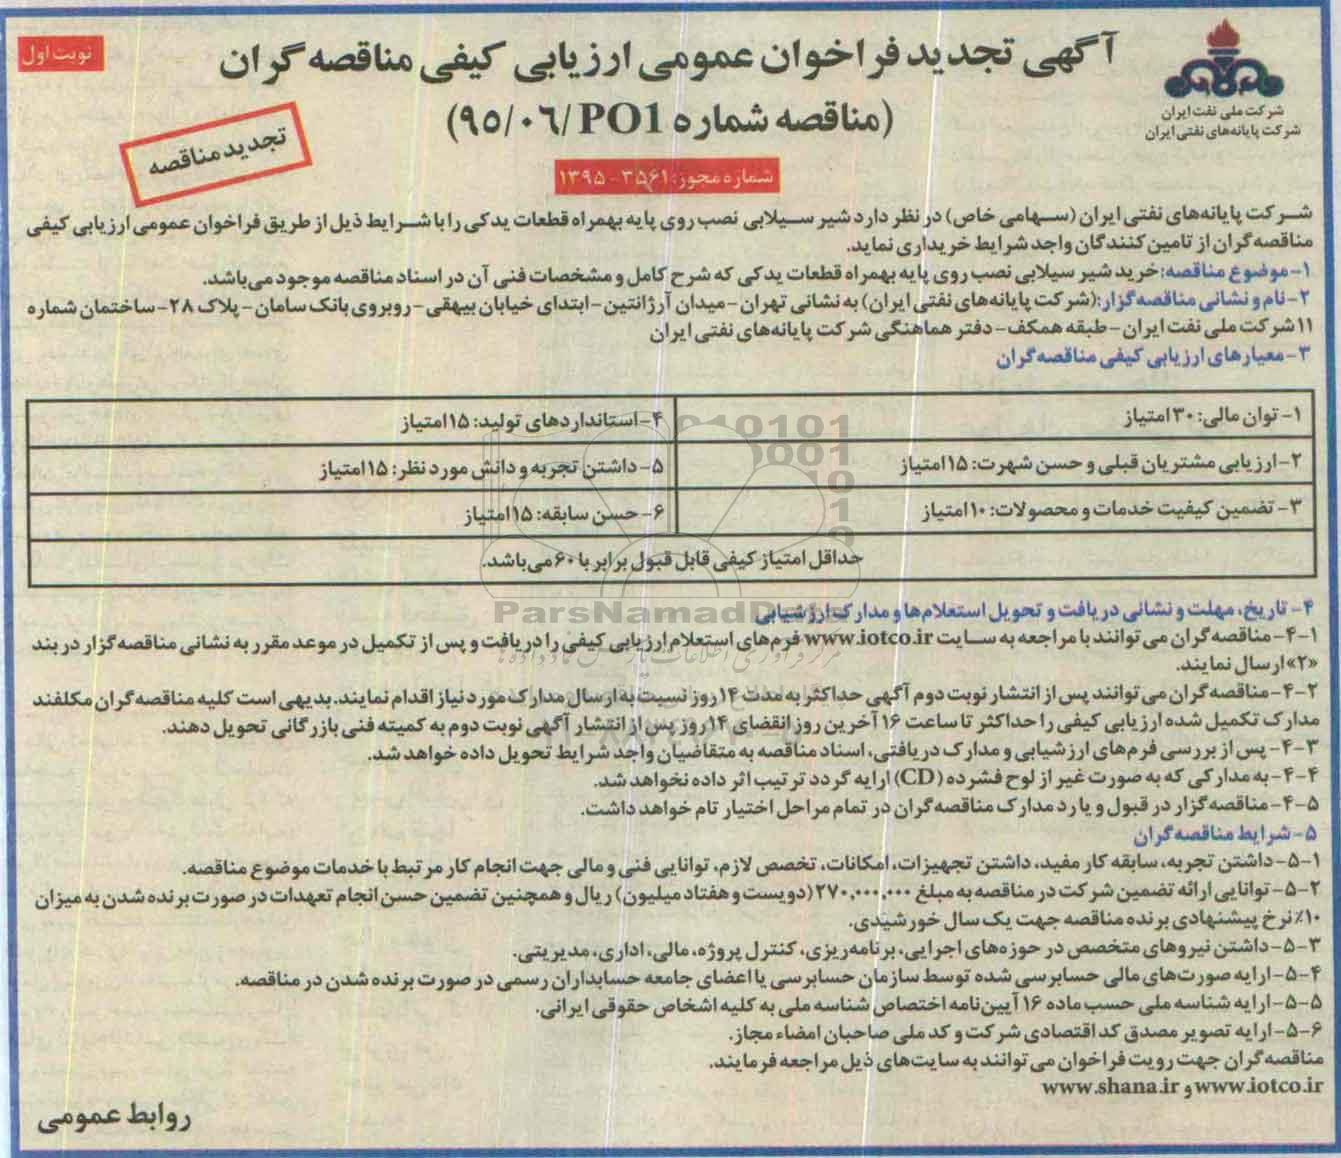 نوبت اول
آگهی تجدید فراخوان عمومی ارزیابی کیفی مناقصه گران
(مناقصه شماره ۹۵/۰۶/PO1)
تجدید مناقصه
شرکت ملی نفت ایران
شرکت پایانه‌های نفتی ایران
شماره مجوز: ۳۵۶۱-۱۳۹۵
شرکت پایانه‌های نفتی ایران (سهامی خاص) در نظر دارد شیر سیلابی نصب روی پایه بهمراه قطعات یدکی را با شرایط ذیل از طریق فراخوان عمومی ارزیابی کیفی
مناقصه گران از تامین کنندگان واجد شرایط خریداری نماید.
۱-موضوع مناقصه: خرید شیر سیلابی نصب روی پایه بهمراه قطعات یدکی که شرح کامل و مشخصات فنی آن در اسناد مناقصه موجود می‌باشد.
۲-نام و نشانی مناقصه گزار: (شرکت پایانه‌های نفتی ایران) به نشانی تهران-میدان آرژانتین-ابتدای خیابان بیهقی-روبروی بانک سامان-پلاک ۲۸-ساختمان شماره
۱۱ شرکت ملی نفت ایران-طبقه همکف-دفتر هماهنگی شرکت پایانه‌های نفتی ایران
۳-معیارهای ارزیابی کیفی مناقصه‌گران
۱- توان مالی: ۳۰ امتیاز
۴-استانداردهای تولید: ۱۵ امتیاز
۲-ارزیابی مشتریان قبلی و حسن شهرت: ۱۵ امتیاز
۵- داشتن تجربه و دانش مورد نظر: ۱۵ امتیاز
۳- تضمین کیفیت خدمات و محصولات: ۱۰ امتیاز
۶- حسن سابقه: ۱۵ امتیاز
حداقل امتیاز کیفی قابل قبول برابر با ۶۰ می‌باشد.
ParsNamadData
۴- تاریخ، مهلت و نشانی دریافت و تحویل استعلام‌ها و مدارک ارزشیابی
۴-۱-مناقصه گران می توانند با مراجعه به سایت www.iotco.ir فرم‌های استعلام ارزیابی کیفی را دریافت و پس از تکمیل در موعد مقرر به نشانی مناقصه گزار در بند
«۲» ارسال نمایند.
۴-۲-مناقصه گران می توانند پس از انتشار نوبت دوم آگهی حداکثر به مدت ۱۴ روز نسبت به ارسال مدارک مورد نیاز اقدام نمایند. بدیهی است کلیه مناقصه گران مکلفند
مدارک تکمیل شده ارزیابی کیفی را حداکثر تا ساعت ۱۶ آخرین روز انقضای ۱۴ روز پس از انتشار آگهی نوبت دوم به کمیته فنی بازرگانی تحویل دهند.
۴-۳- پس از بررسی فرم‌های ارزشیابی و مدارک دریافتی، اسناد مناقصه به متقاضیان واجد شرایط تحویل داده خواهد شد.
۴-۴-به مدارکی که به صورت غیر از لوح فشرده (CD) ارایه گردد ترتیب اثر داده نخواهد شد.
۴-۵-مناقصه‌گزار در قبول و یا رد مدارک مناقصه‌گران در تمام مراحل اختیار تام خواهد داشت.
۵-شرایط مناقصه‌گران
۵-۱-داشتن تجربه، سابقه کار مفید، داشتن تجهیزات، امکانات، تخصص لازم، توانایی فنی و مالی جهت انجام کار مرتبط با خدمات موضوع مناقصه.
۵-۲- توانایی ارائه تضمین شرکت در مناقصه به مبلغ ۲۷۰,۰۰۰,۰۰۰ (دویست و هفتاد میلیون) ریال و همچنین تضمین حسن انجام تعهدات در صورت برنده شدن به میزان
۱۰٪ نرخ پیشنهادی برنده مناقصه جهت یک سال خورشیدی.
۵-۳-داشتن نیروهای متخصص در حوزه‌های اجرایی، برنامه‌ریزی، کنترل پروژه، مالی، اداری، مدیریتی.
۵-۴-ارایه صورت‌های مالی حسابرسی شده توسط سازمان حسابرسی یا اعضای جامعه حسابداران رسمی در صورت برنده شدن در مناقصه.
۵-۵-ارایه شناسه ملی حسب ماده ۱۶ آیین‌نامه اختصاص شناسه ملی به کلیه اشخاص حقوقی ایرانی.
۵-۶-ارایه تصویر مصدق کد اقتصادی شرکت و کد ملی صاحبان امضاء مجاز.
مناقصه گران جهت رویت فراخوان می توانند به سایت‌های ذیل مراجعه فرمایند.
www.iotco.ir و www.shana.ir
روابط عمومی